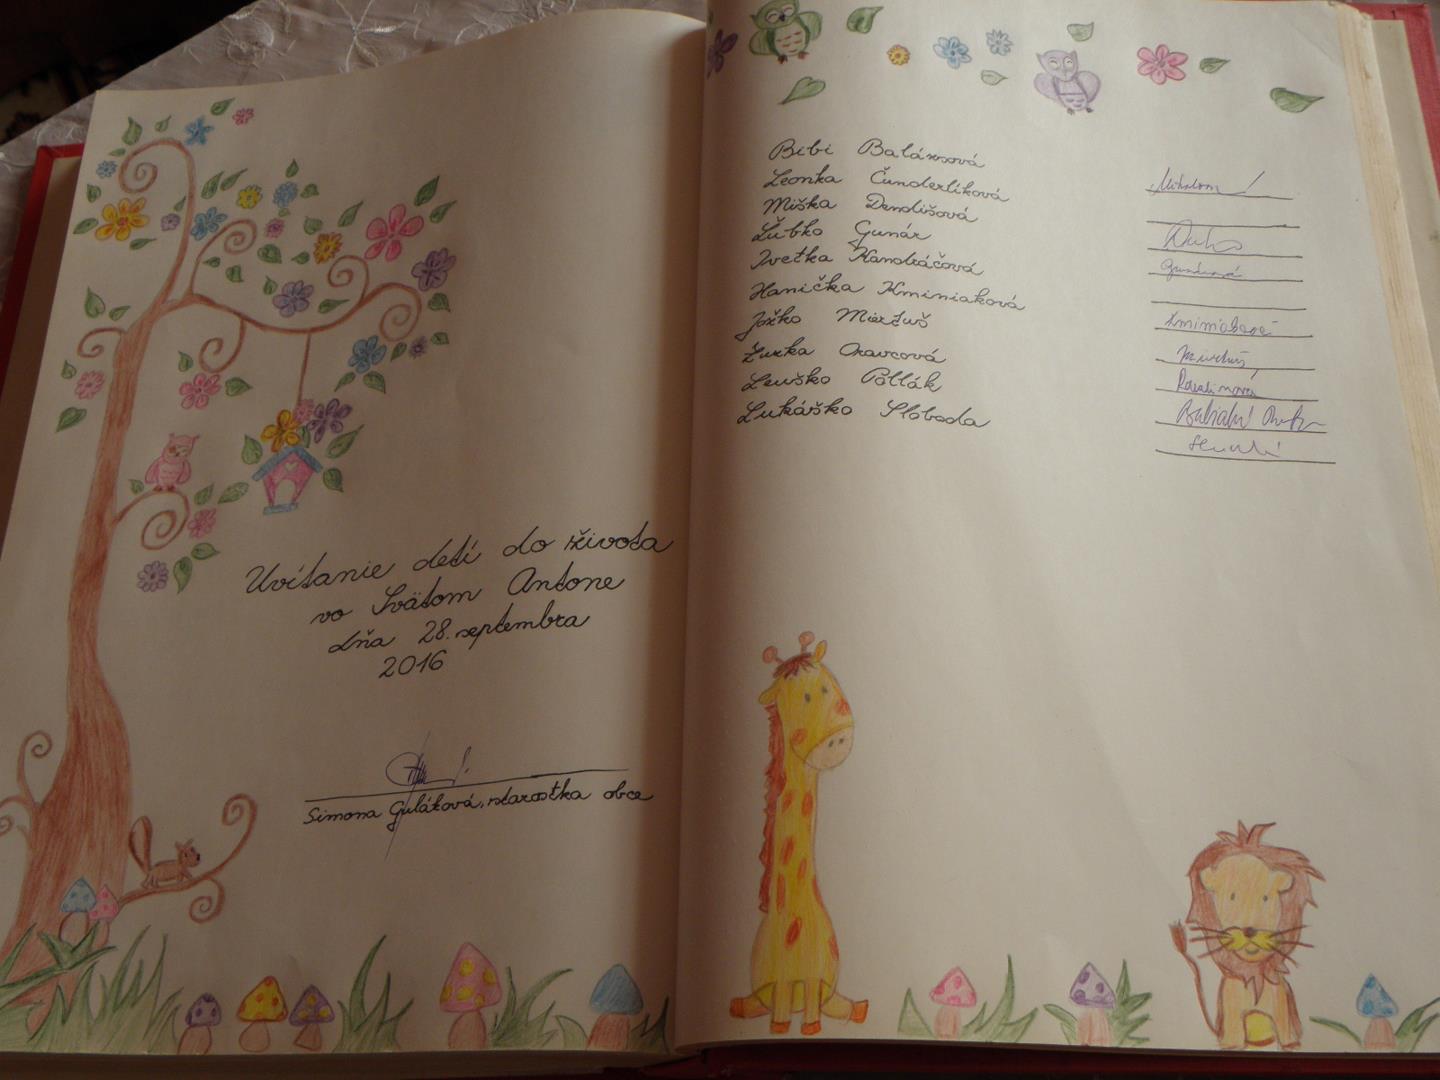 Uvítanie detí do života
vo Svätom Antone
dňa 28. septembra
2016
Simona Guláková, starostka obce
Bibi Balážsová
Leonka Čunderlíková
Miška Dendišová
Ľubko Gunár
Ivetka Kandráčová
Hanička Kminiaková
Jožko Miertuš
Zurka Oravcová
Leuško Pöllák
Lukáško Sloboda
Kminiaková